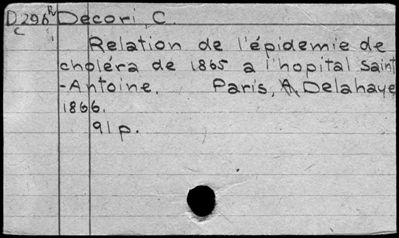 D296R Decori, C.
C
Relation de l'épidemie de
choléra de 1865 a l'hopital Saint
-Antoine. Paris, A, Delahaye,
1866.
91p.